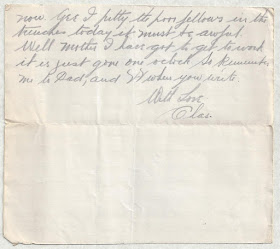 now. Gee I pitty the poor fellows in the
trenches today it must be awful.
Well Mother I have got to get to work
it is just gone one oclock so Remember
me to Dad, and when you write.
With Love